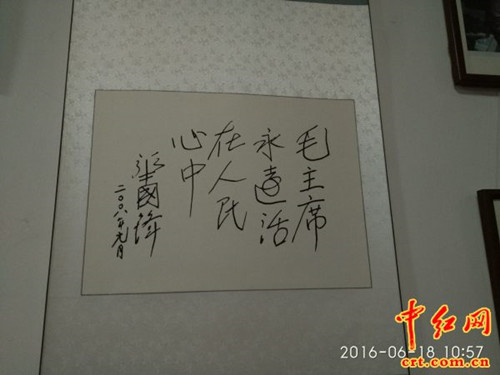 毛主席
永遠活
在人民
心中
二〇〇八年元月
中红网
crt.com.cn
2016-06-18 10:57